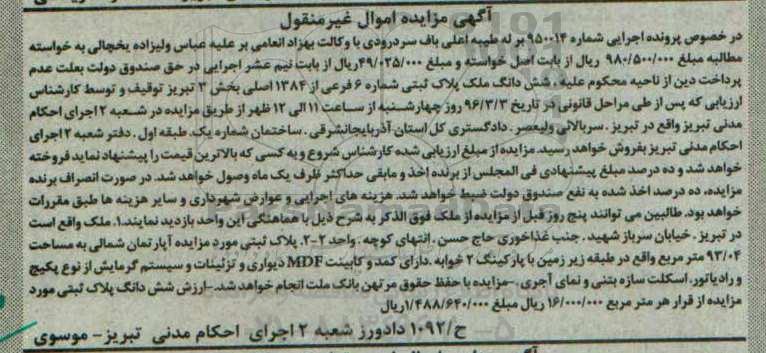 آگهی مزایده اموال غیرمنقول
در خصوص پرونده اجرایی شماره ۹۵۰۰۱۴ بر له طیبه اعلی باف سردرودی با وکالت بهزاد انعامی بر علیه عباس ولیزاده یخچالی به خواسته
مطالبه مبلغ ۹۸۰/۵۰۰/۰۰۰ ریال از بابت اصل خواسته و مبلغ ۴۹/۰۲۵/۰۰۰ریال از بابت نیم عشر اجرایی در حق صندوق دولت بعلت عدم
پرداخت دین از ناحیه محکوم علیه، شش دانگ ملک پلاک ثبتی شماره ۶ فرعی از ۱۳۸۴ اصلی بخش ۳ تبریز توقیف و توسط کارشناس
ارزیابی که پس از طی مراحل قانونی در تاریخ ۹۶/۳/۳ روز چهارشنبه از ساعت ۱۱ الی ۱۲ ظهر از طریق مزایده در شعبه ۲ اجرای احکام
مدنی تبریز واقع در تبریز . سربالائی ولیعصر . دادگستری کل استان آذربایجانشرقی . ساختمان شماره یک. طبقه اول . دفتر شعبه ۲ اجرای
احکام مدنی تبریز بفروش خواهد رسید. مزایده از مبلغ ارزیابی شده کارشناس شروع و به کسی که بالاترین قیمت را پیشنهاد نماید فروخته
خواهد شد و ده درصد مبلغ پیشنهادی فی المجلس از برنده اخذ و مابقی حداکثر ظرف یک ماه وصول خواهد شد. در صورت انصراف برنده
مزایده، ده درصد اخذ شده به نفع صندوق دولت ضبط خواهد شد. هزینه های اجرایی و عوارض شهرداری و سایر هزینه ها طبق مقررات
خواهد بود. طالبین می توانند پنج روز قبل از مزایده از ملک فوق الذکر به شرح ذیل با هماهنگی این واحد بازدید نمایند.۱. ملک واقع است
در تبریز . خیابان سرباز شهید . جنب غذاخوری حاج حسن . انتهای کوچه . واحد ۲-۲. پلاک ثبتی مورد مزایده آپارتمان شمالی به مساحت
۹۳/۰۴ متر مربع واقع در طبقه زیر زمین با پارکینگ ۲ خوابه .دارای کمد و کابینت MDF دیواری و تزئینات و سیستم گرمایش از نوع پکیج
و رادیاتور. اسکلت سازه بتنی و نمای آجری. -مزایده با حفظ حقوق مرتهن بانک ملت انجام خواهد شد. -ارزش شش دانگ پلاک ثبتی مورد
مزایده از قرار هر متر مربع ۱۶/۰۰۰/۰۰۰ ریال مبلغ ۱/۴۸۸/۶۴۰/۰۰۰ریال
ح/۱۰۹۲ دادورز شعبه ۲ اجرای احکام مدنی تبریز- موسوی